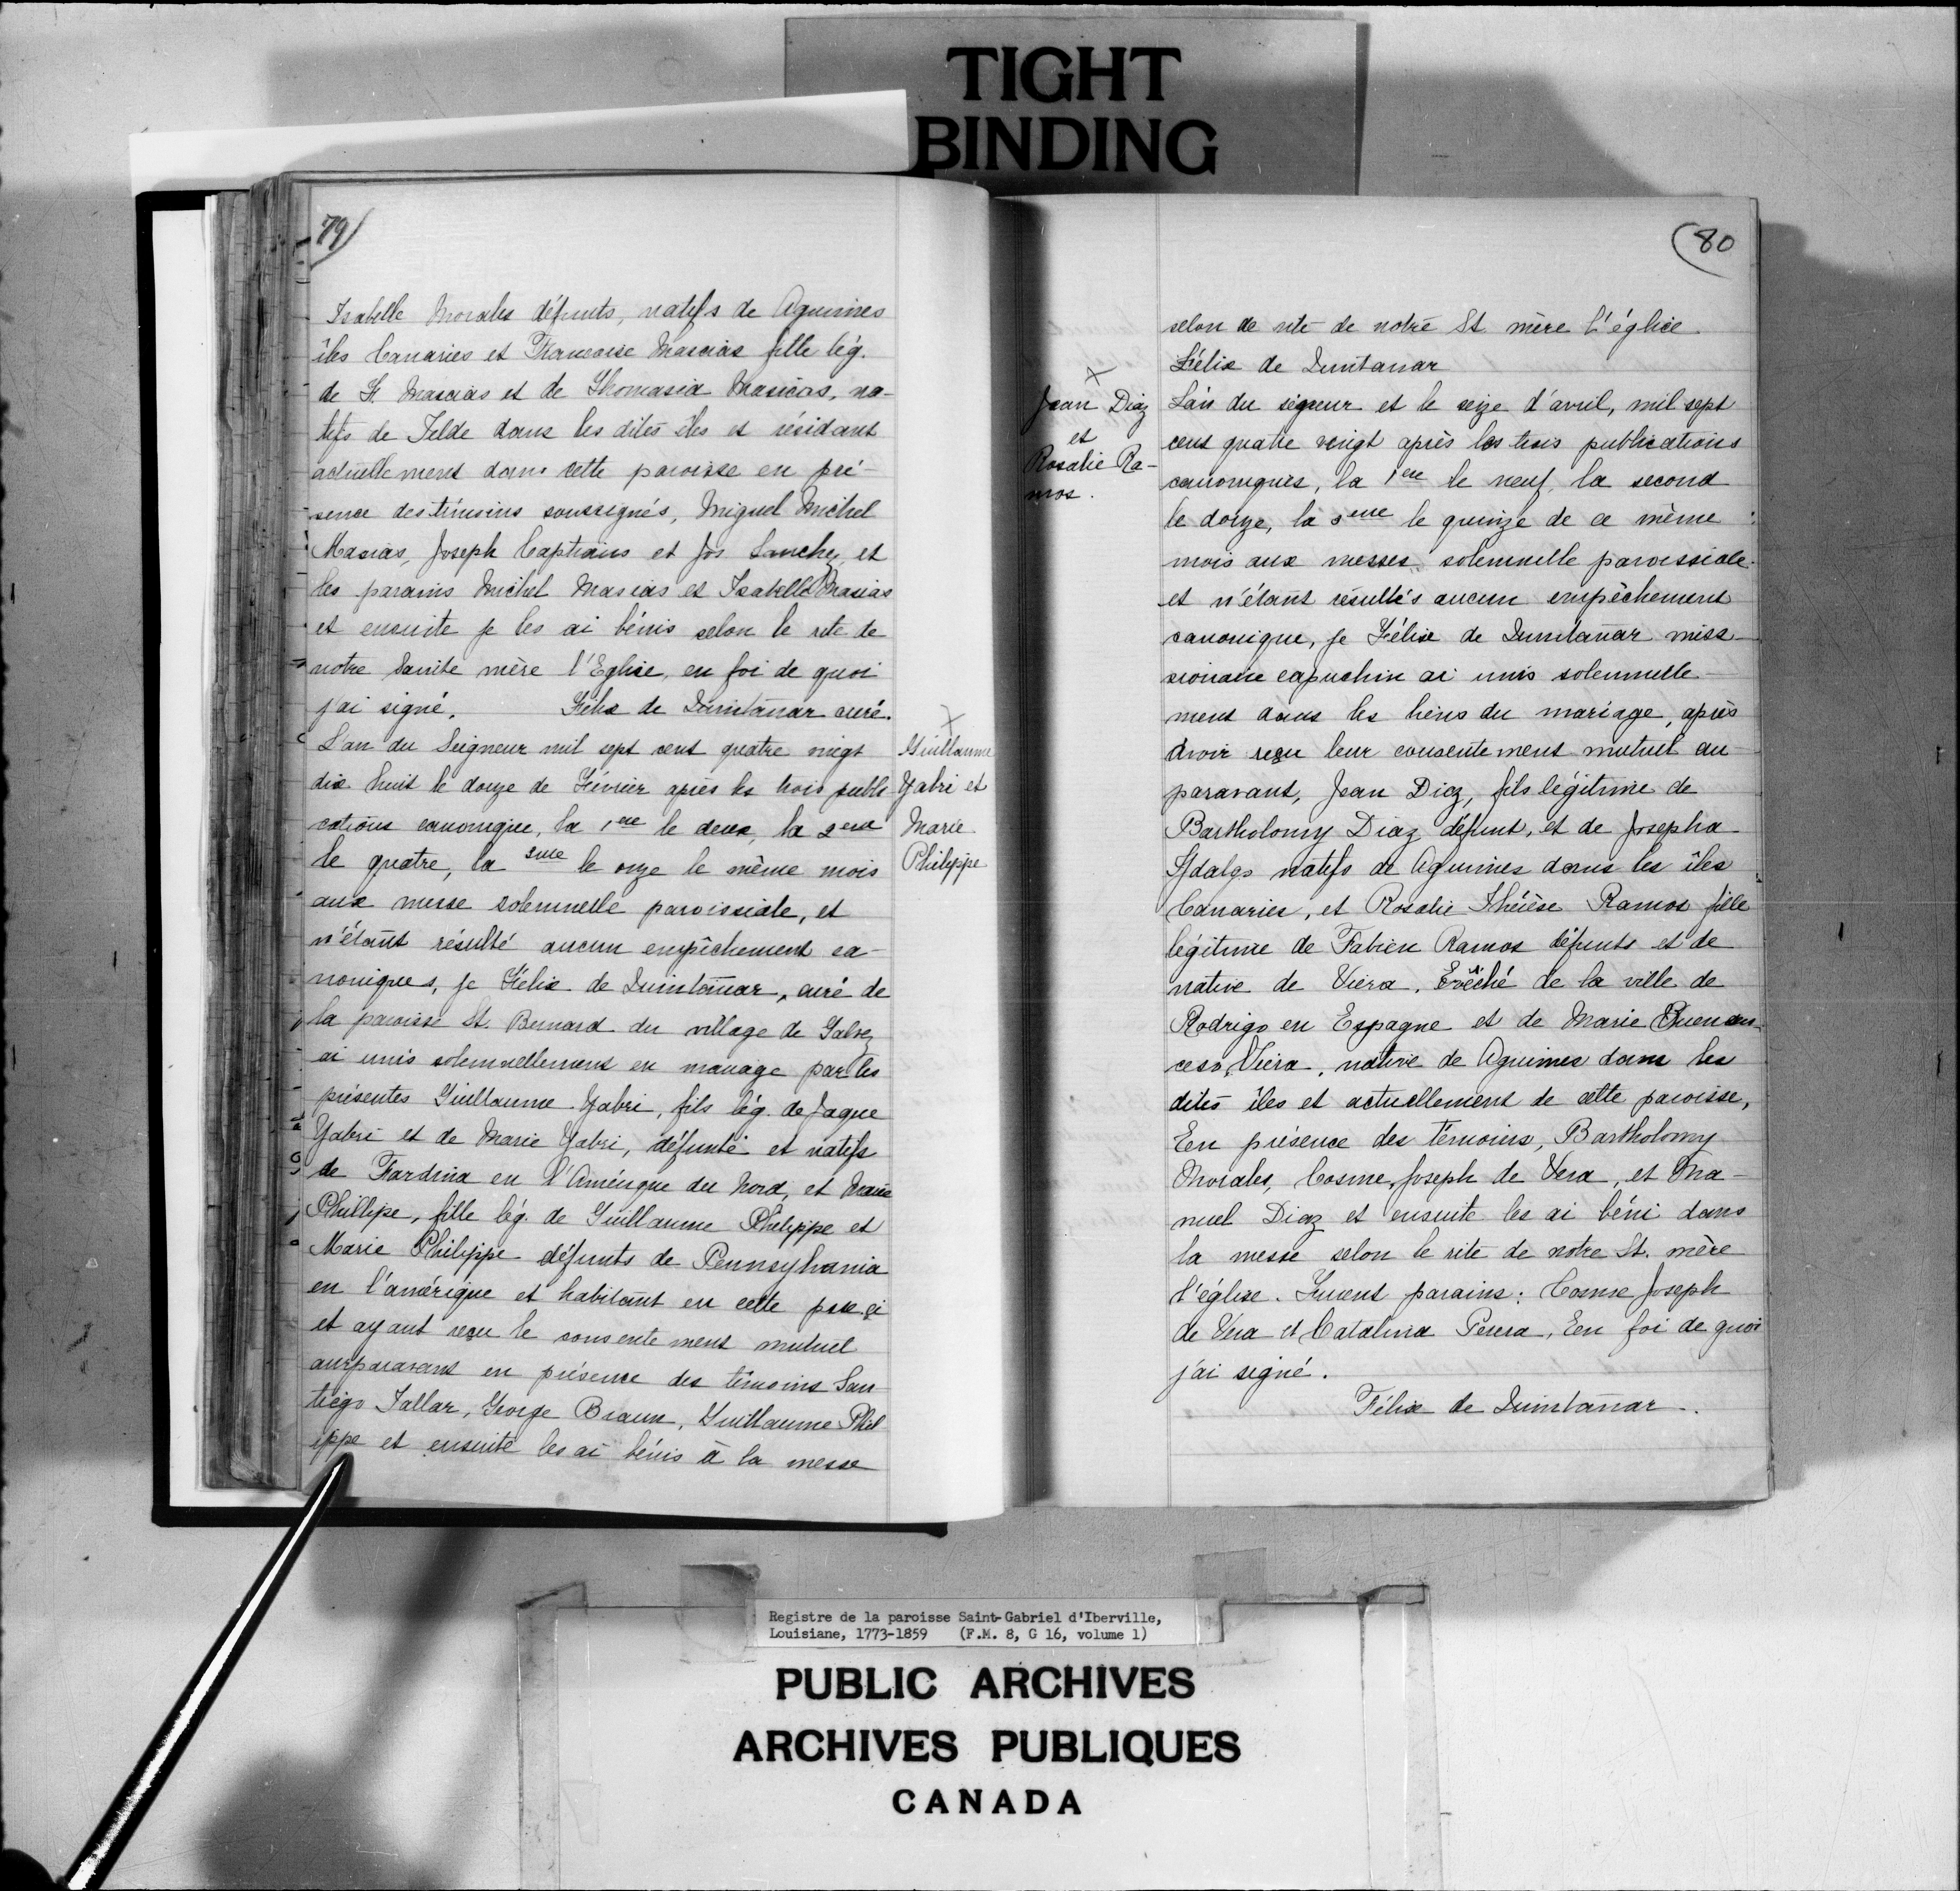 TIGHT
BINDING
79
Isabelle Morales défunts, natifs de Aguimes
îles Canaries et Francoise Mascias fille lég.
de St. Mascias et de Thomasia Masicas, na-
tifs de Telde dans les dites îles et résidant
actuellement dans cette paroisse en pré-
sence des témoins soussignés, Miguel Michel
Macias, Joseph Captiains et Jos Sanchez, et
les parains Michel Masias et Isabelle Masias
et ensuite je les ai bénis selon le rite de
notre Sainte mère l'Eglise, en foi de quoi
j'ai signé. Félix de Quintanar curé.
L'an du Seigneur mil sept cent quatre vingt
dix huit le douze de Février après les trois publi
cations canonique, la 1ere le deux, la 2eme
le quatre, la 3me le onze le même mois
aux messe solemnelle paroissiale, et
n'étant résulté aucun empêchement ca-
noniques, je Félix de Quintanar, curé de
la paroisse St. Bernard du village de Galvez
ai unis solemnellement en mariage par les
présentes Guillaume Yabri, fils lég. de Jaque
Yabri et de Marie Yabri, défunte et natifs
de Fardina en l'Amérique du Nord, et Marie
Phillipe, fille lég. de Guillaume Philippe et
Marie Philippe défunts de Pennsylvania
en l'amérique et habitant en cette
et ayant reçu le consentement mutuel
auxparavant en présence des témoins San
tiego Tallar, George Braun, Guillaume Phil
ippe et ensuite les ai bénis à la messe
X
Guillaume
Yabri et
Marie
Philippe
80
selon de rite de notre St mère L'église
Félix de Quintanar
X
Jean Diaz
et
Rosalie Ra-
mos.
L'an du signeur et le seize d'avril, mil sept
cent quatre vingt après les trois publications
canoniques, la 1ere le neuf, la second
le douze, la 3eme le quinze de ce même
mois aux messes solemnelle paroissiale.
et n'étant résultés aucun empêchement
canonique, je Félix de Quintanar miss-
sionaire capuchin ai unis solemnelle-
ment dans les liens du mariage, après
avoir reçu leur consentement mutuel au
paravant, Jean Diaz, fils légitime de
Bartholomy Diaz défunt, et de Josepha
Ydalgo natifs de Aguimes dans les îles
Canaries, et Rosalie Thérèse Ramos fille
légitime de Fabien Ramos défunts et de
native de Viera, Evêché de la ville de
Rodrigo en Espagne et de Marie Buenau-
ceso Viera, native de Aguimes dans les
dites îles et actuellement de cette paroisse,
Een présence des témoins, Bartholomy
Morales, Cosme, Joseph de Vera, et Ma-
nuel Diaz et ensuite les ai béni dans
la messe selon le rite de notre St. mère
l'église. Furent parains: Cosme Joseph
de Vera et Catalina Perera, Een foi de quoi
j'ai signé.
Félix de Quintanar.
Registre de la paroisse Saint-Gabriel d'Iberville,
Louisiane, 1773-1859 (F.M. 8, G 16, volume 1)
PUBLIC ARCHIVES
ARCHIVES PUBLIQUES
CANADA